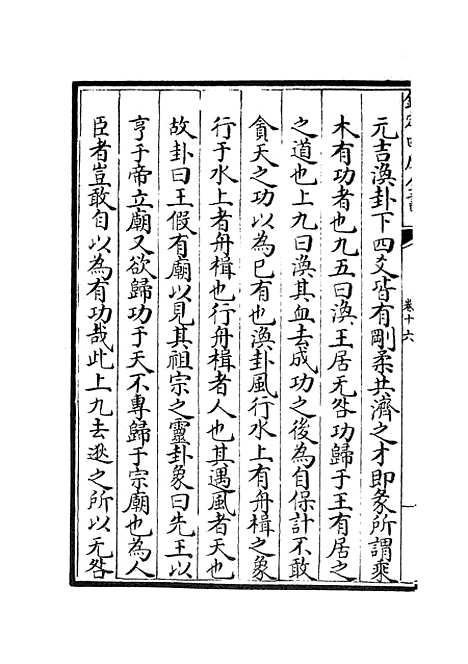 元吉渙卦下四爻皆有剛柔共濟之才即彖所謂乘
木有功者也九五曰渙王居无咎功歸于王有居之
之道也上九曰渙其血去成功之後為自保計不敢
貪天之功以為已有也渙卦風行水上有舟楫之象
行于水上者舟楫也行舟楫者人也其遇風者天也
故卦曰王假有廟以見其祖宗之靈卦象曰先王以
亨于帝立廟又欲歸功于天不專歸于宗廟也為人
臣者豈敢自以為有功哉此上九去逖之所以无咎
卷十六